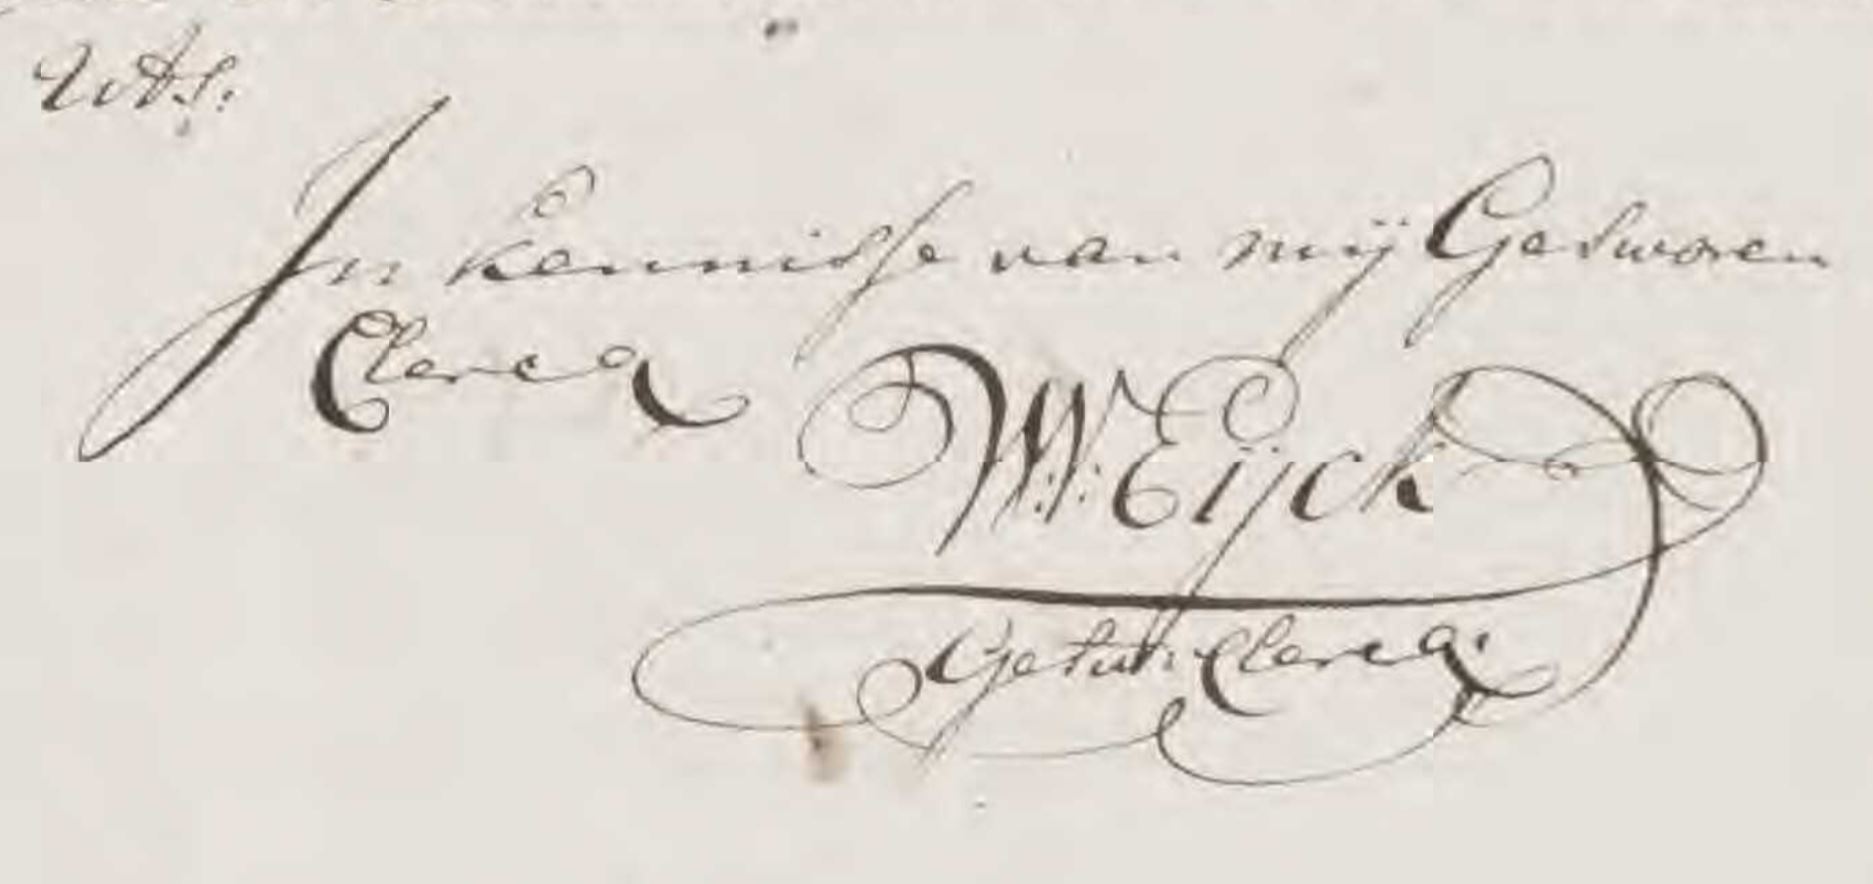 uts:
In kennisse van mij Gesworen
Clercq
W: Eijck
Gesw: Clercq.